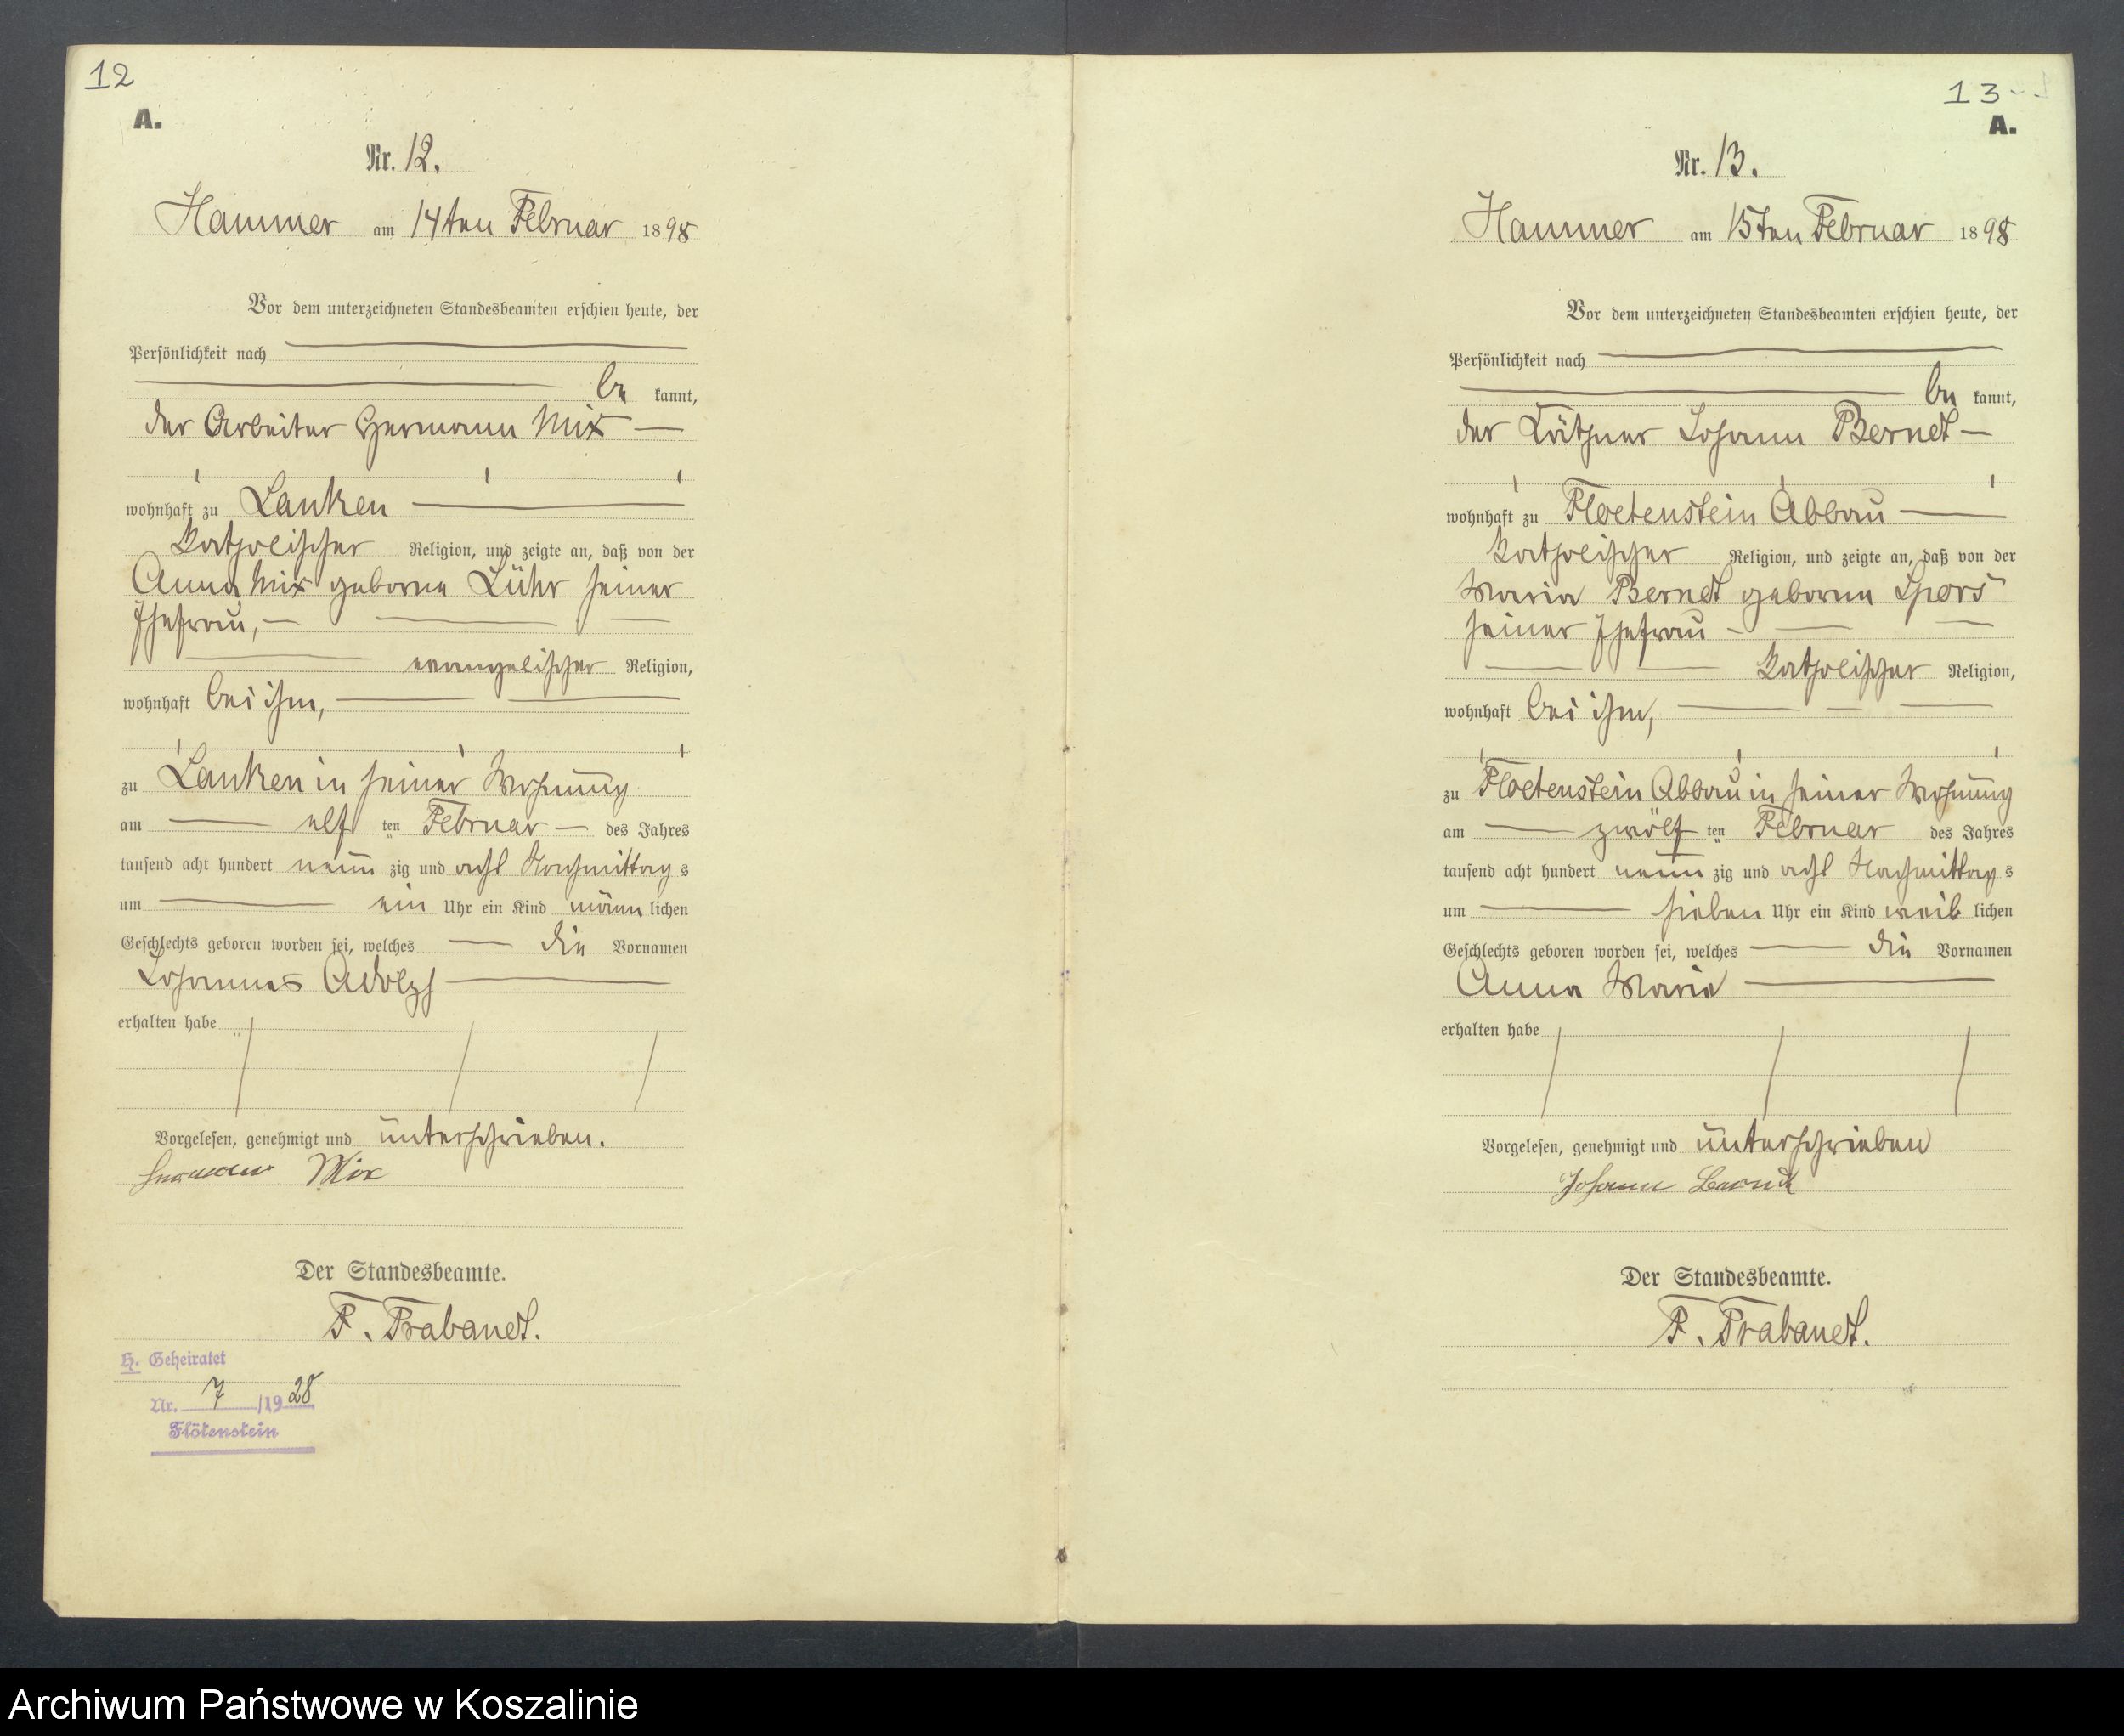 12
A.
Nr. 12.
Hammer am 14ten Februar 1898
Vor dem unterzeichneten Standesbeamten erschien heute, der
Persönlichkeit nach
be kannt,
der Arbeiter Hermann Mix
wohnhaft zu Lanken
katholischer Religion, und zeigte an, daß von der
Anna Mix geborne Lühr seiner
Ehefrau,
evangelischer Religion,
wohnhaft bei ihm,
zu Lanken in seiner Wohnung
am elf ten Februar des Jahres
tausend acht hundert neun zig und acht Nachmittag s
um ein Uhr ein Kind männ lichen
Geschlechts geboren worden sei, welches die Vornamen
Johannes Adolph
erhalten habe
Vorgelesen, genehmigt und unterschrieben.
Hermann Mix
Der Standesbeamte.
F. Trabandt.
H. Geheiratet
Nr. 7 /1928
Flötenstein
13
A.
Nr. 13.
Hammer am 15ten Februar 1898
Vor dem unterzeichneten Standesbeamten erschien heute, der
Persönlichkeit nach
be kannt,
der Käthner Johann Berndt
wohnhaft zu Floetenstein Abbau
katholischer Religion, und zeigte an, daß von der
Maria Berndt geborne Spors
seiner Ehefrau
katholischer Religion,
wohnhaft bei ihm,
zu Floetenstein Abbau in seiner Wohnung
am zwölf ten Februar des Jahres
tausend acht hundert neun zig und acht Nachmittag s
um sieben Uhr ein Kind weib lichen
Geschlechts geboren worden sei, welches die Vornamen
Anna Maria
erhalten habe
Vorgelesen, genehmigt und unterschrieben
Johann Berndt
Der Standesbeamte.
F. Trabandt.
Archiwum Państwowe w Koszalinie